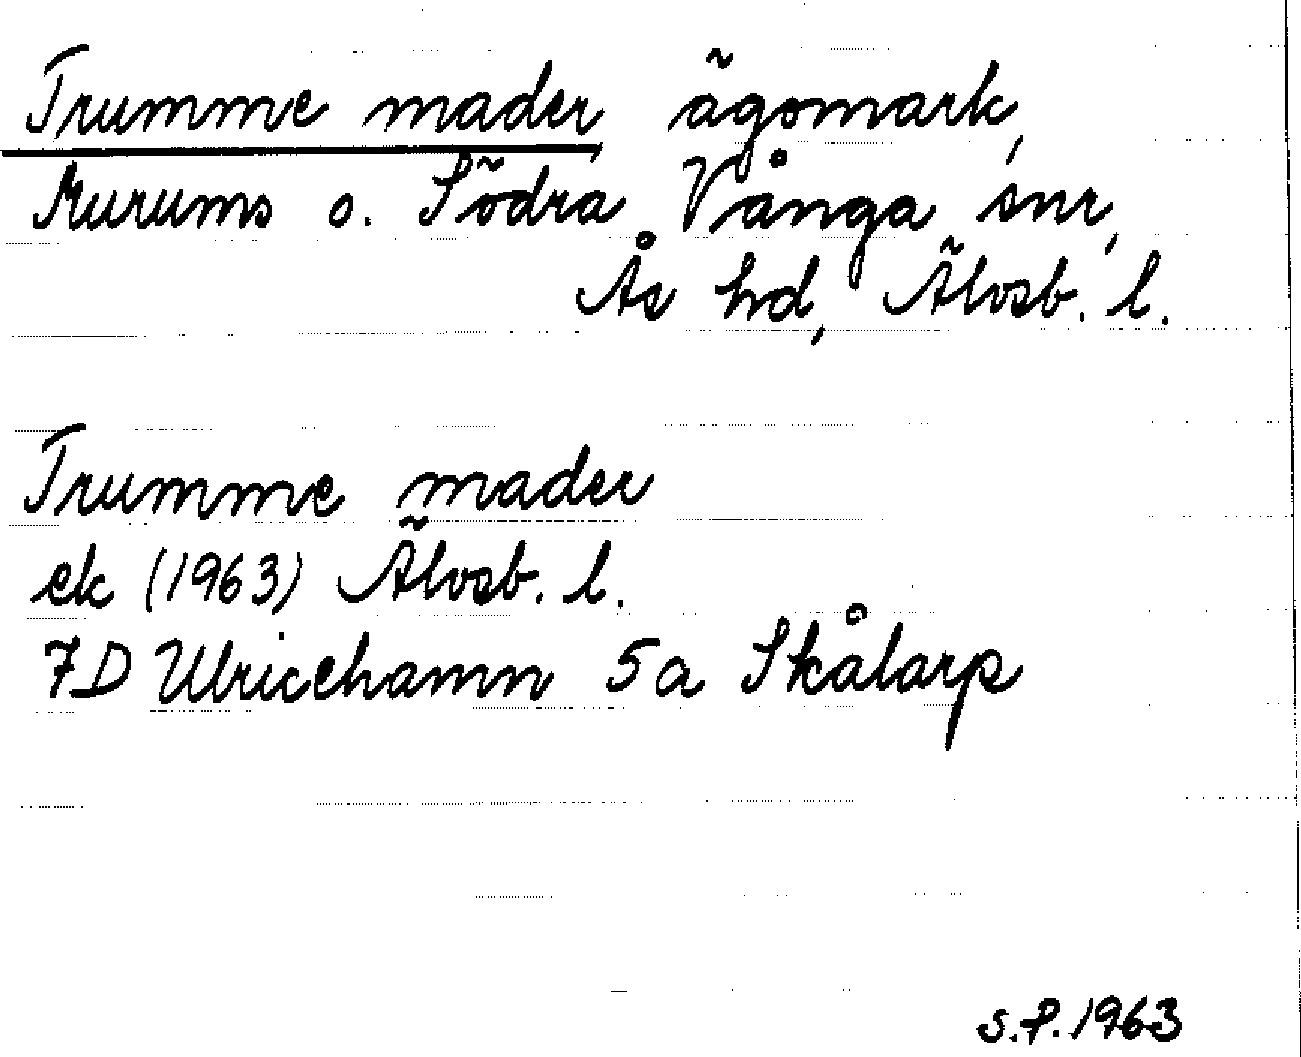 Trumme mader, ägomark,
Murums o. Södra Vånga snr,
Ås hd, Älvsb. l.
Trumme mader
ek (1963) Älvsb. l.
7D Ulricehamn 5a Skålarp
S.P. 1963